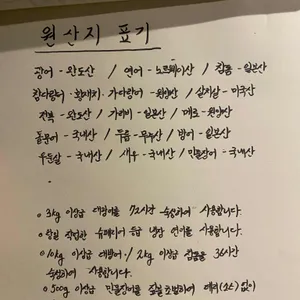 원산지 표기
광어 - 완도산 / 연어 - 노르웨이산 / 참돔 - 일본산
참다랑어 - 원양산 / 살치살 - 미국산
전복 - 완도산 / 가리비 - 일본산 / 메로 - 원양산
돌문어 - 국내산 / 방어 - 일본산
국내산 / 새우 - 국내산 / 민물장어 - 국내산
3kg 이상급 대광어를 72시간 숙성하여 사용합니다.
슈페리어급 냉장 연어를 사용합니다.
10kg 이상급 대방어 / 2kg 이상급 참돔을 36시간
숙성하여 사용합니다.
500g 이상급 민물장어를 없이